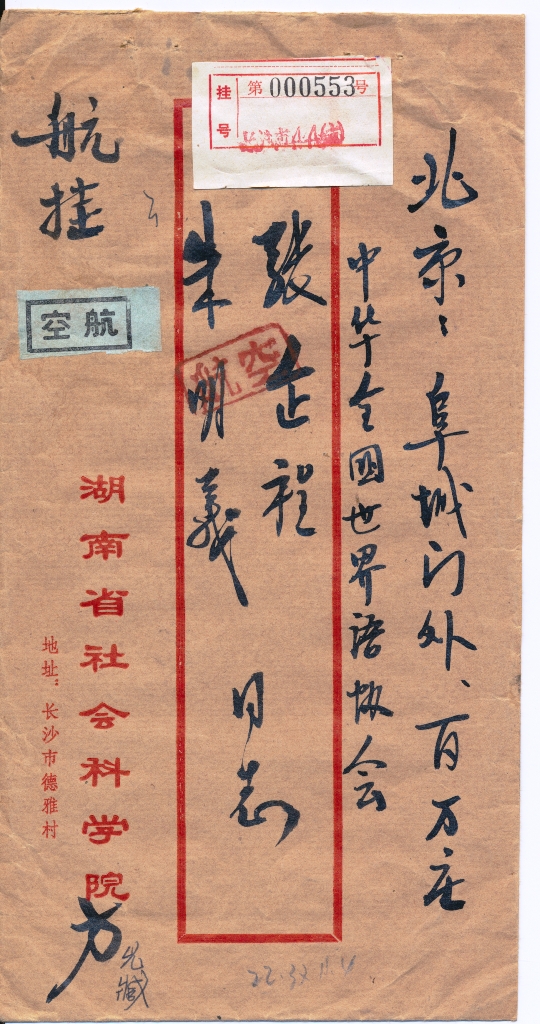 北京：阜城门外、百万庄
中华全国世界语协会
张企程
朱明义
同志
挂号
第000553号
航空
航挂
航空
湖南省社会科学院
地址：长沙市德雅村
方